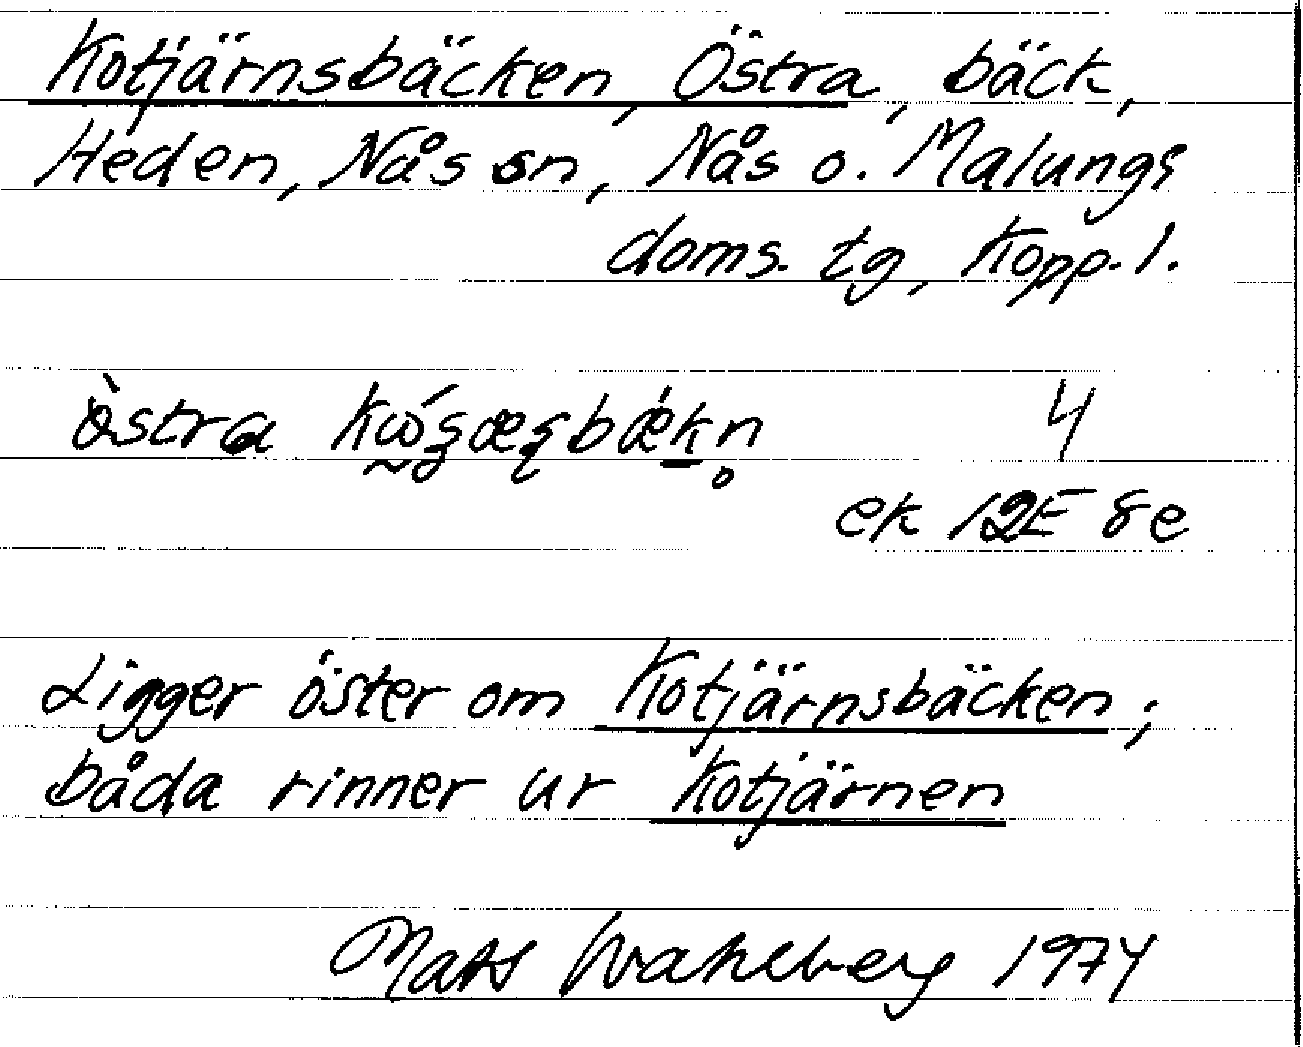 Kotjärnsbäcken, Östra, bäck,
Heden, Nås sn, Nås o. Malungs
doms. tg, Kopp. l.
östra 4
ek 12E 8e
Ligger öster om Kotjärnsbäcken;
båda rinner ur Kotjärnen
Mats Wahlberg 1974